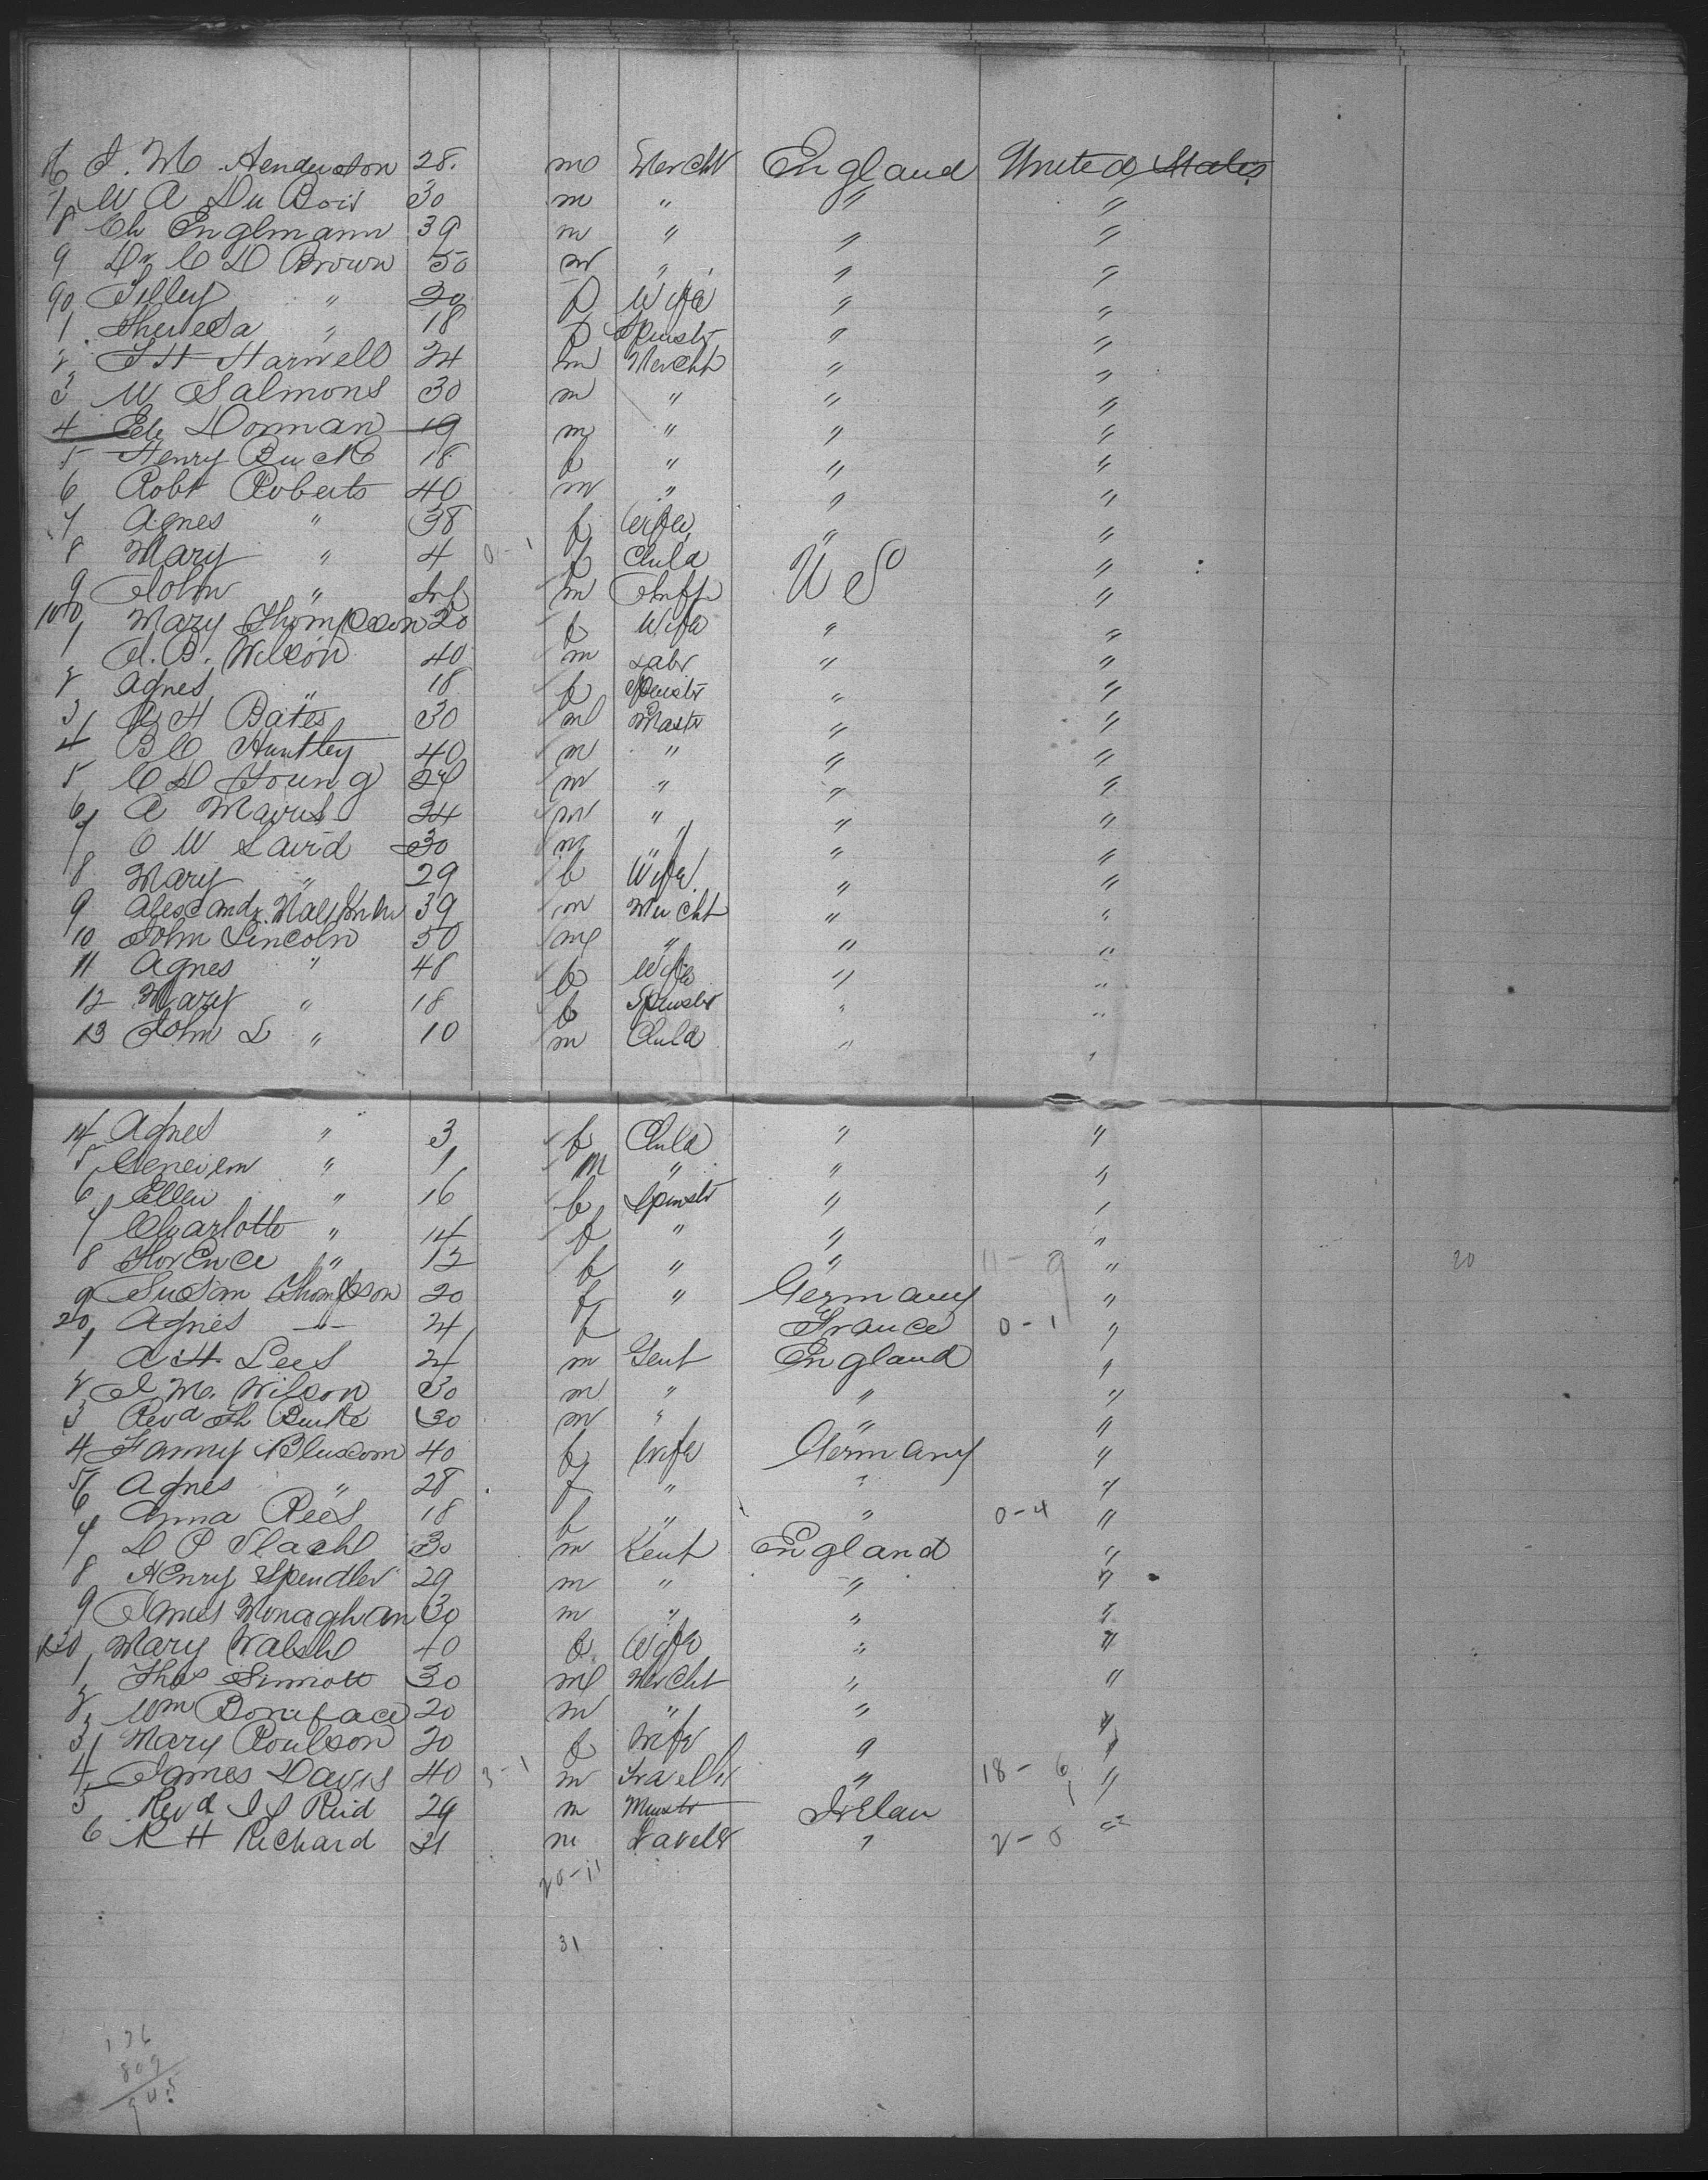 6 J. M. Henderson 28. m Mercht England United States
7 W A Du Bois 30 m " " "
8 Ch Englmann 39 m " " "
9 Dr C D Brown 50 m " " "
90 Tilley " 20 f Wife " "
1 Theresa " 18 f Spinstr " "
2 T H Harwell 24 m Mercht " "
3 W Salmons 30 m " " "
4 Ede Dorman 19 m " " "
5 Henry Buck 18 f " " "
6 Robt Roberts 40 m " " "
7 Agnes " 38 f Wife " "
8 Mary " 4 0-1 f Child U S "
9 John " Inf m "
100 Mary Thompson 20 f Wife " "
1 A. B. Wilson 40 m Labr " "
2 Agnes " 18 f Spinstr " "
3 H Bates 30 m Mastr " "
4 B C Huntley 40 m " " "
5 C D Young 24 m " " "
6 A 24 m " " "
7 C W Laird 30 m " " "
8 Mary " 29 f Wife " "
9 39 m Mercht " "
10 John Lincoln 50 m " " "
11 Agnes " 48 f Wife " "
12 Mary " 18 f Spinstr " "
13 John L " 10 m Child " "
14 Agnes " 3 f Child " "
5 " 1 m " " "
6 Ellen " 16 f Spinstr " "
7 Charlotte " 14 f " " "
8 Florence " 12 f " " 11-9 " 20
9 Susan Thompson 20 f " Germany "
20 Agnes " 24 f France 0-1 "
1 A H Lees 24 m Gent England "
2 J M. Wilson 30 m " " "
3 Revd Th Burke 30 m " " "
4 Fanny Bluxcom 40 f Wife Germany "
5 Agnes " 28 f " " "
6 Anna Rees 18 f " " 0-4 "
7 D P Slachl 30 m Kent England "
8 Henry Spendler 29 m " " "
9 James Monaghan 30 m " " "
130 Mary Walshe 40 f Wife " "
1 Thos Sinnott 30 m Mercht " "
2 Wm Boniface 20 m " " "
3 Mary Poulson 20 f Wife " "
4 James Davis 40 3-1 m Travellr " 18-6 "
5 Revd J S Reid 29 m Minstr Irelan 1 "
6 R H Richard 21 m Travelr " 2-0 "
20-11
31
136
809
945